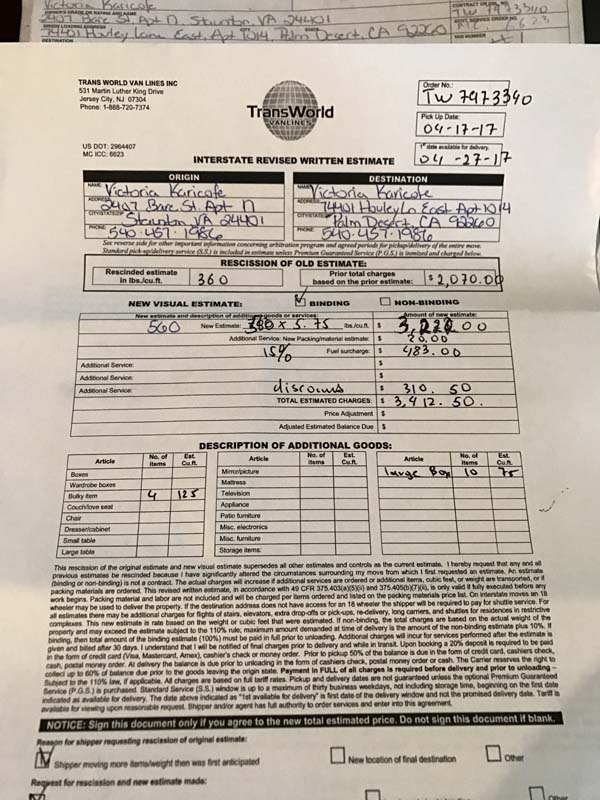 Victoria Karicofe
2407 Bare St. Apt N, Staunton, VA 24401
74401 Hovley Lane East, Apt 1014, Palm Desert, CA 92260
DESTINATION
TW 7973340
6623
VAN NUMBER
TRANS WORLD VAN LINES INC
531 Martin Luther King Drive
Jersey City, NJ 07304
Phone: 1-888-720-7374
TransWorld
VANLINES
Order No.:
TW 7973340
Pick Up Date:
04-17-17
1st date available for delivery.
04-27-17
US DOT: 2964407
MC ICC: 6623
INTERSTATE REVISED WRITTEN ESTIMATE
ORIGIN
NAME: Victoria Karicofe
ADDRESS: 2407 Bare St. Apt N
CITY/STATE/ZIP Staunton VA 24401
PHONE: 540-457-1986
DESTINATION
NAME: Victoria Karicofe
ADDRESS: 74401 Hovley Ln East Apt 1014
CITY/STATE/ Palm Desert, CA 92260
PHONE: 540-457-1986
See reverse side for other important information concerning arbitration program and agreed periods for pickup/delivery of the entire move.
Standard pick-up/delivery service (S.S.) is included in estimate unless Premium Guaranteed Service (P.G.S.) is itemized and charged below.
RESCISSION OF OLD ESTIMATE:
Rescinded estimate in lbs./cu.ft. 360
Prior total charges based on the prior estimate: $ 2,070.00
NEW VISUAL ESTIMATE: BINDING NON-BINDING
New estimate and description of additional goods or services: Amount of new estimate:
560 New Estimate: x 5.75 lbs./cu.ft. $ 3,220.00
Additional Service: New Packing/material estimate: $ 20.00
15% Fuel surcharge: $ 483.00
Additional Service: $
Additional Service: $
Additional Service: discount $ 310.50
TOTAL ESTIMATED CHARGES: $ 3,412.50.
Price Adjustment $
Adjusted Estimated Balance Due $
DESCRIPTION OF ADDITIONAL GOODS:
Article No. of items Est. Cu.ft.
Boxes
Wardrobe boxes
Bulky item 4 125
Couch/love seat
Chair
Dresser/cabinet
Small table
Large table
Article No. of items Est. Cu.ft.
Mirror/picture
Mattress
Television
Appliance
Patio furniture
Misc. electronics
Misc. furniture
Storage items:
Article No. of items Est. Cu.ft.
Large Box 10 75
This rescission of the original estimate and new visual estimate supersedes all other estimates and controls as the current estimate. I hereby request that any and all
previous estimates be rescinded because I have significantly altered the circumstances surrounding my move from which I first requested an estimate. An estimate
(binding or non-binding) is not a contract. The actual charges will increase if additional services are ordered or additional items, cubic feet, or weight are transported, or if
packing materials are ordered. This revised written estimate, in accordance with 49 CFR 375.403(a)(5)(ii) and 375.405(b)(7)(ii), is only valid if fully executed before any
work begins. Packing material and labor are not included and will be charged per items ordered and listed on the packing materials price list. On interstate moves an 18
wheeler may be used to deliver the property. If the destination address does not have access for an 18 wheeler the shipper will be required to pay for shuttle service. For
all estimates there may be additional charges for flights of stairs, elevators, extra drop-offs or pick-ups, re-delivery, long carries, and shuttles for residences in restrictive
complexes. This new estimate is rate based on the weight or cubic feet that were estimated. If non-binding, the total charges are based on the actual weight of the
property and may exceed the estimate subject to the 110% rule; maximum amount demanded at time of delivery is the amount of the non-binding estimate plus 10%. If
binding, then total amount of the binding estimate (100%) must be paid in full prior to unloading. Additional charges will incur for services performed after the estimate is
given and billed after 30 days. I understand that I will be notified of final charges prior to delivery and while in transit. Upon booking a 20% deposit is required to be paid
in the form of credit card (Visa, Mastercard, Amex), cashier's check or money order. Prior to pickup 50% of the balance is due in the form of credit card, cashiers check,
cash, postal money order. At delivery the balance is due prior to unloading in the form of cashiers check, postal money order or cash. The Carrier reserves the right to
collect up to 60% of balance due prior to the goods leaving the origin state. Payment in FULL of all charges is required before delivery and prior to unloading –
Subject to the 110% law, if applicable. All charges are based on full tariff rates. Pickup and delivery dates are not guaranteed unless the optional Premium Guaranteed
Service (P.G.S.) is purchased. Standard Service (S.S.) window is up to a maximum of thirty business weekdays, not including storage time, beginning on the first date
indicated as available for delivery. The date above indicated as "1st available for delivery" is first date of the delivery window and not the promised delivery date. Tariff is
available for viewing upon reasonable request. Shipper and/or agent has full authority to order services and enter into this agreement.
NOTICE: Sign this document only if you agree to the new total estimated price. Do not sign this document if blank.
Reason for shipper requesting rescission of original estimate:
Shipper moving more items/weight then was first anticipated New location of final destination Other
Request for rescission and new estimate made:
Other